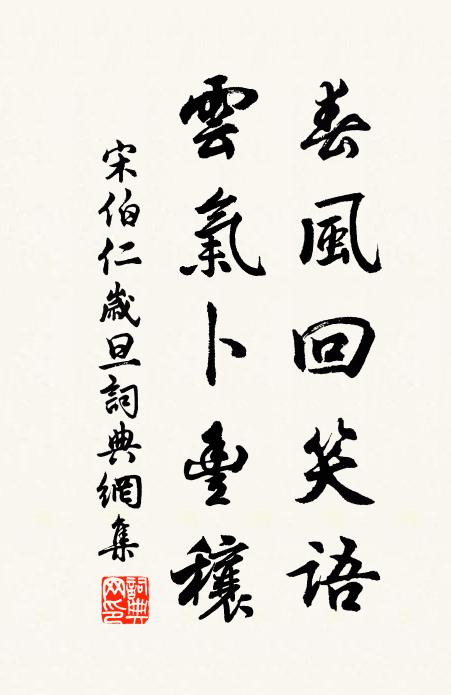 春風回笑語
雲氣卜豐穰
宋伯仁歲旦詞典網集
詞典網印